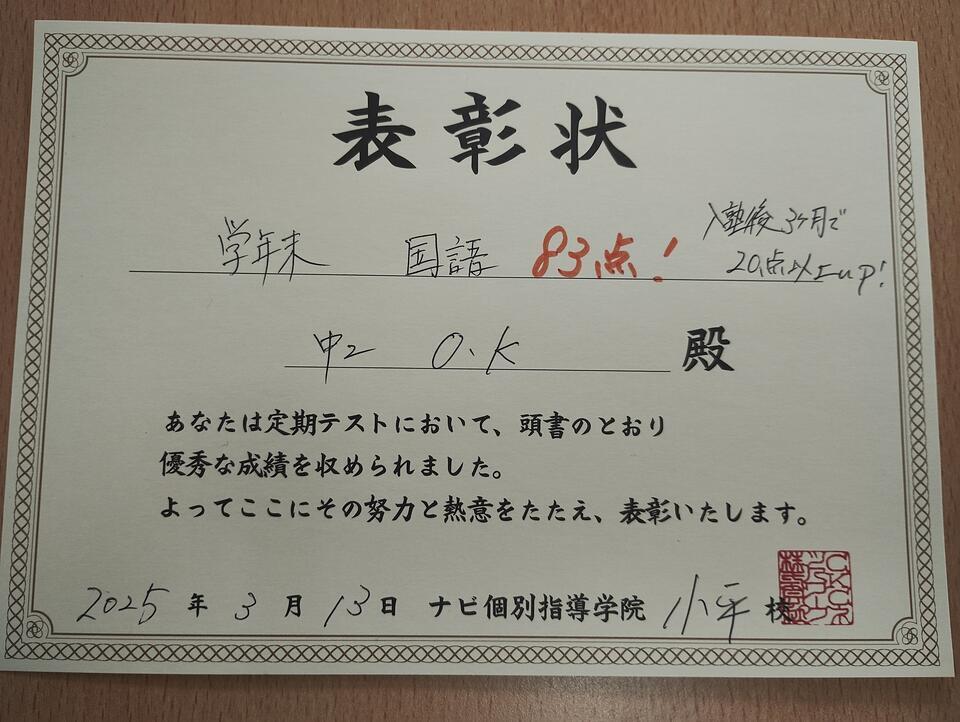 表彰状
学年末 国語 83点! 入塾後3ヶ月で
20点以上up!
中2 O.K 殿
あなたは定期テストにおいて、頭書のとおり
優秀な成績を収められました。
よってここにその努力と熱意をたたえ、表彰いたします。
2025年3月13日 ナビ個別指導学院 小平校